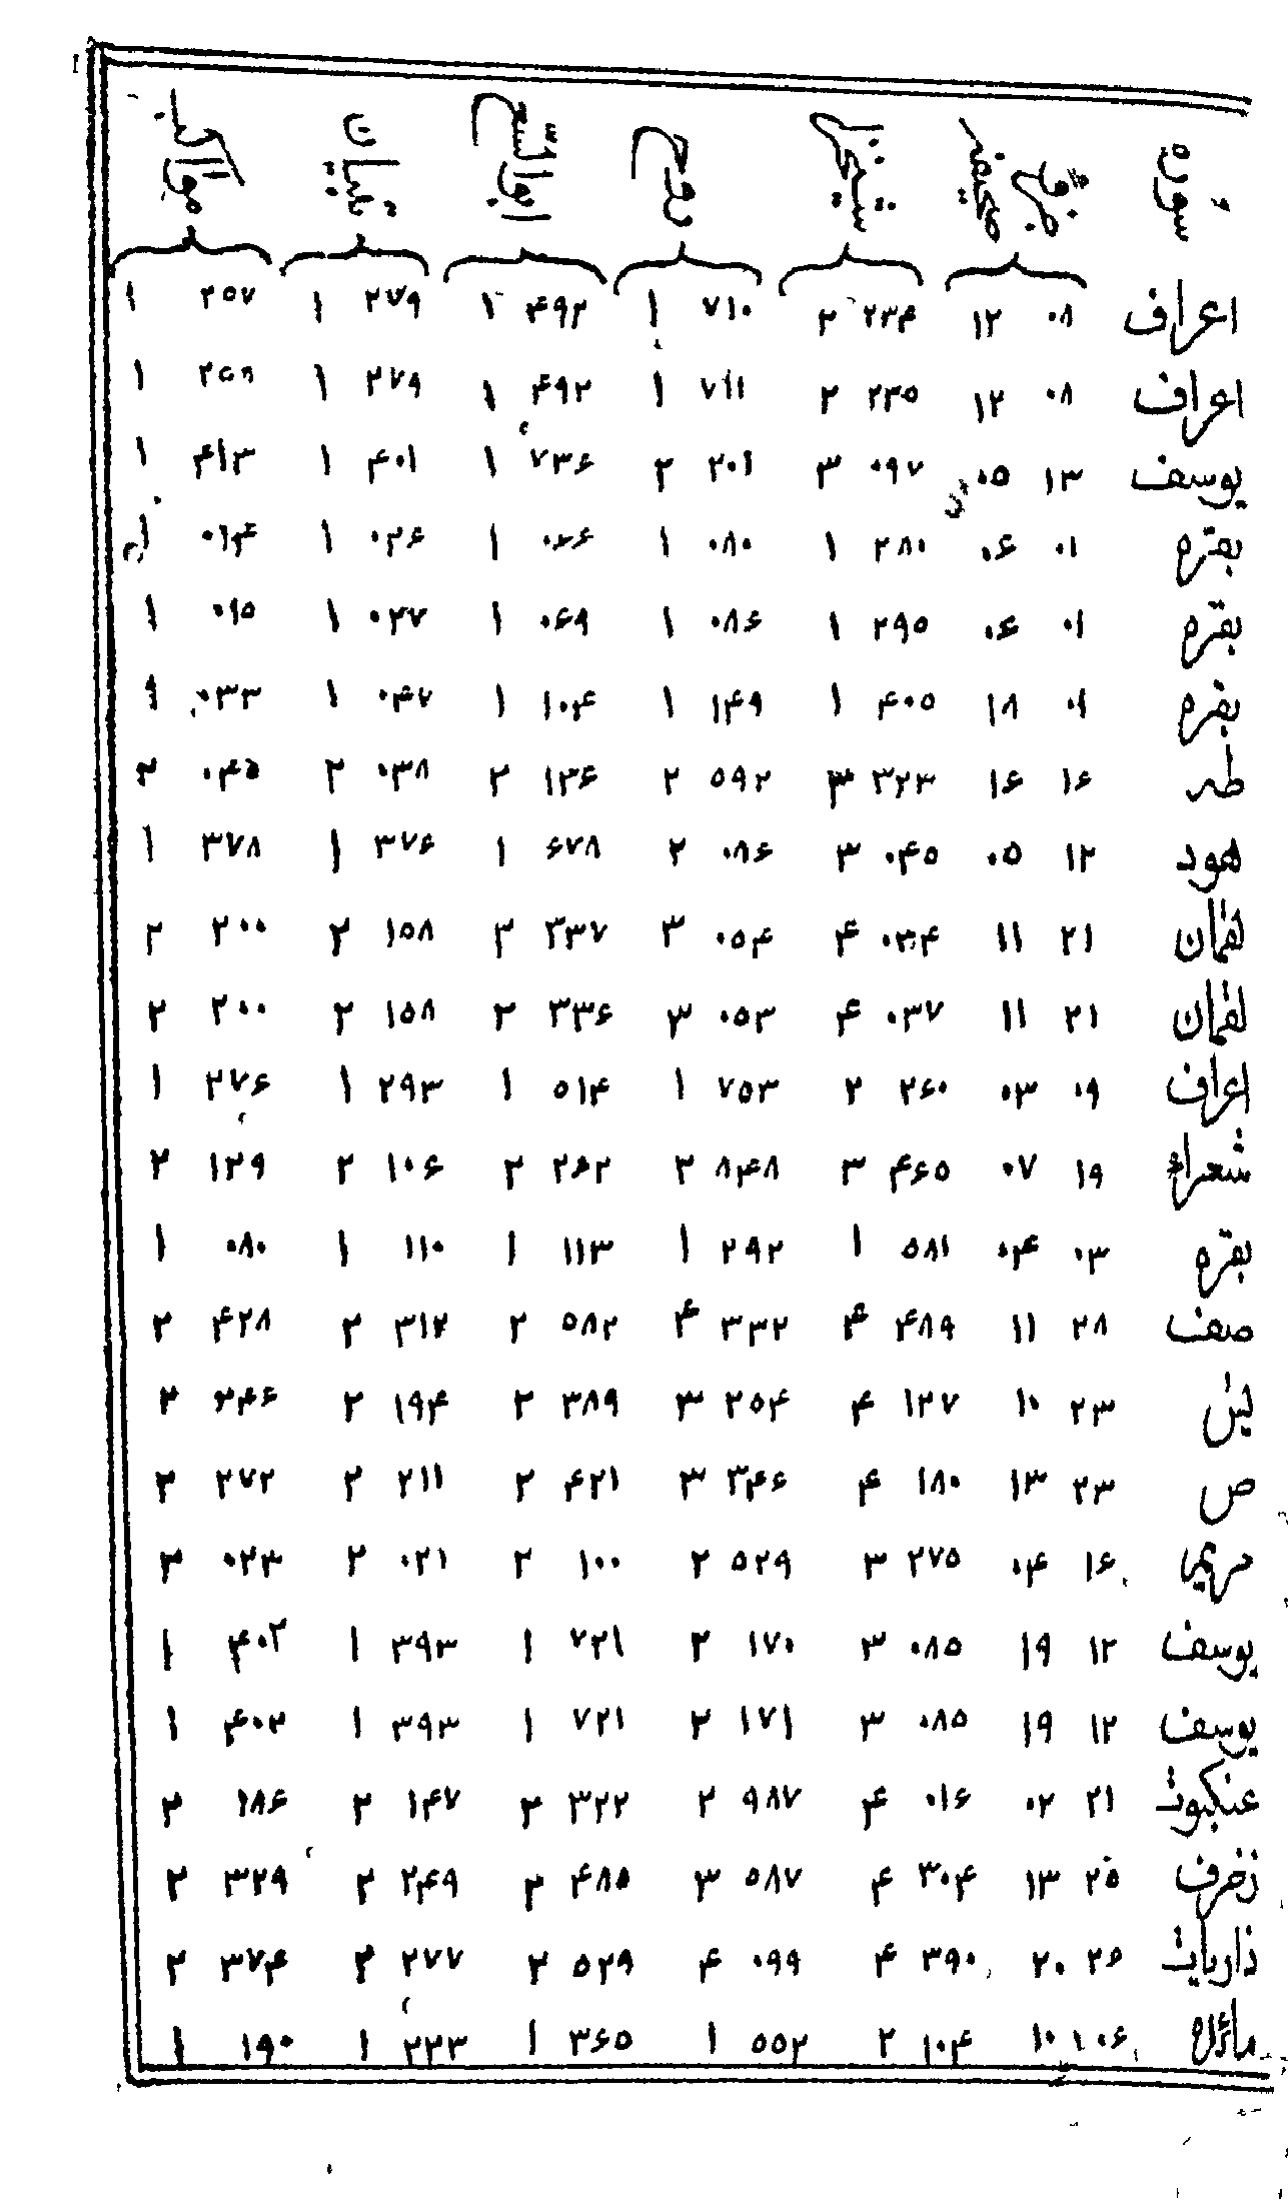 سوره جزو صحیفه شیخزاده روح ابوالسّعود تبیان مواکب
اعراف ۰۸ ۱۲ ۲۳۴ ۲ ۷۱۰ ۱ ۴۹۲ ۱ ۲۷۹ ۱ ۲۵۷ ۱
اعراف ۰۸ ۱۲ ۲۳۵ ۲ ۷۱۱ ۱ ۴۹۲ ۱ ۲۷۹ ۱ ۱
یوسف ۱۳ ۰۵ ۰۹۷ ۳ ۲۰۹ ۲ ۷۳۶ ۱ ۴۰۱ ۱ ۴۱۳ ۱
بقره ۰۱ ۰۶ ۲۸۰ ۱ ۰۸۰ ۱ ۰۶۶ ۱ ۰۲۶ ۱ ۰۱۴ ۱
بقره ۰۱ ۰۶ ۲۹۵ ۱ ۰۸۶ ۱ ۰۶۹ ۱ ۰۲۷ ۱ ۰۱۵ ۱
بقره ۰۱ ۱۸ ۴۰۵ ۱ ۱۴۹ ۱ ۱۰۴ ۱ ۰۴۷ ۱ ۰۳۳ ۱
طه ۱۶ ۱۶ ۳۲۳ ۳ ۵۹۲ ۲ ۱۳۶ ۲ ۰۳۸ ۲ ۰۴۵ ۲
هود ۱۲ ۰۵ ۰۴۵ ۳ ۰۸۶ ۲ ۶۷۸ ۱ ۳۷۶ ۱ ۳۷۸ ۱
لقمان ۲۱ ۱۱ ۰۳۴ ۴ ۰۵۴ ۳ ۳۳۷ ۲ ۱۵۸ ۲ ۲۰۰ ۲
لقمان ۲۱ ۱۱ ۰۳۷ ۴ ۰۵۳ ۳ ۳۳۶ ۲ ۱۵۸ ۲ ۲۰۰ ۲
اعراف ۰۹ ۰۳ ۲۶۰ ۲ ۷۵۳ ۱ ۵۱۴ ۱ ۲۹۳ ۱ ۲۷۶ ۱
شعراء ۱۹ ۰۷ ۴۶۵ ۳ ۸۴۸ ۲ ۲۶۲ ۲ ۱۰۶ ۲ ۱۲۹ ۲
بقره ۰۳ ۰۴ ۵۸۱ ۱ ۲۹۲ ۱ ۱۱۳ ۱ ۱۱۰ ۱ ۰۸۰ ۱
صف ۲۸ ۱۱ ۴۸۹ ۴ ۳۳۲ ۴ ۵۸۲ ۲ ۳۱۷ ۲ ۴۲۸ ۲
یس ۲۳ ۱۰ ۱۲۷ ۴ ۲۵۴ ۳ ۳۸۹ ۲ ۱۹۴ ۲ ۲۴۶ ۲
ص ۲۳ ۱۳ ۱۸۰ ۴ ۳۴۶ ۳ ۴۲۱ ۲ ۲۱۱ ۲ ۲۷۲ ۲
مریم ۱۶ ۰۴ ۲۷۵ ۳ ۵۲۹ ۲ ۱۰۰ ۲ ۰۲۱ ۲ ۰۲۳ ۲
یوسف ۱۲ ۱۹ ۰۸۵ ۳ ۱۷۰ ۲ ۷۲۱ ۱ ۳۹۳ ۱ ۴۰۲ ۱
یوسف ۱۲ ۱۹ ۰۸۵ ۳ ۱۷۱ ۲ ۷۲۱ ۱ ۳۹۳ ۱ ۴۰۲ ۱
عنکبوت ۲۱ ۰۲ ۰۱۶ ۴ ۹۸۷ ۲ ۳۲۲ ۲ ۱۴۷ ۲ ۱۸۶ ۲
زخرف ۲۵ ۱۳ ۳۰۴ ۴ ۵۸۷ ۳ ۴۸۵ ۲ ۲۴۹ ۲ ۳۲۹ ۲
ذاریات ۲۶ ۲۰ ۳۹۰ ۴ ۰۹۹ ۴ ۵۲۹ ۲ ۲۷۷ ۲ ۳۷۴ ۲
مائده ۰۶ ۱۰ ۱۰۴ ۲ ۵۵۲ ۱ ۳۶۵ ۱ ۲۲۳ ۱ ۱۹۰ ۱